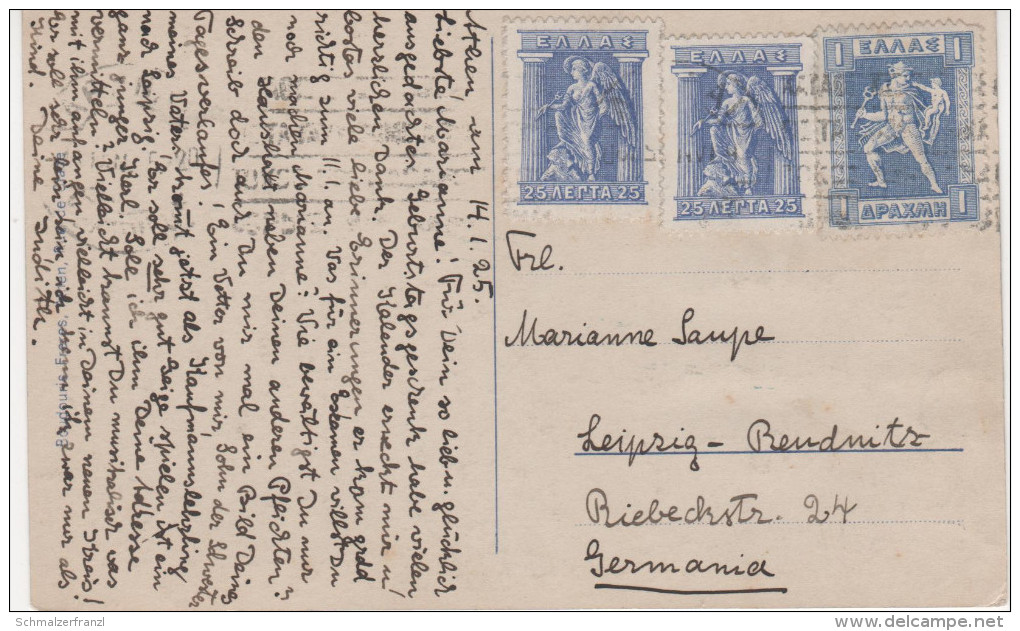 Athen, am 14.1.25.
Liebste Marianne! Für Dein so lieb u. glücklich
ausgedachtes Geburtstagsgeschenk habe vielen
herrlichen Dank. Der Kalender erweckt mir u
Lostas viele liebe Erinnerungen er kam grad
richtig zum 11.1. an. Was für ein Examen willst Du
noch machen Marianne? Wie bewältigst Du nur
den Haushalt neben Deinen anderen Pflichten?
Schreib doch auch Du mir mal ein Bild Deines
Tagesverlaufes! Ein Vetter von mir, Sohn der Schwester
meines Vaters kommt jetzt als Kaufmannslehrling
nach Leipzig. Er soll sehr gut Geige spielen ist ein
ganz junger Kerl. Soll ich ihm Deine Adresse
vermitteln? Vielleicht kannst Du musikalisch was
mit ihm anfangen vielleicht in Deinem neuen Kreis!
Er soll sehr fein sein ich ihn zwar nur als
Kind. Deine Judith.
ΕΛΛΑΣ
25 ΛΕΠΤΑ 25
ΕΛΛΑΣ
25 ΛΕΠΤΑ 25
1 ΕΛΛΑΣ 1
1 ΔΡΑΧΜΗ 1
Frl.
Marianne Saupe
Leipzig - Reudnitz
Riebeckstr. 24
Germania
Schmalzerfranzl
delcampe.net